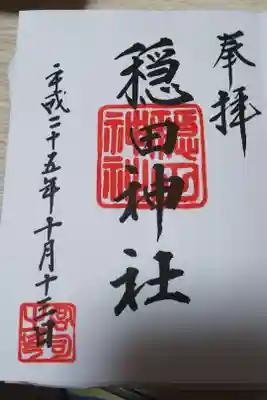 奉拝
穏田神社
平成二十五年十月十三日
穏田神社